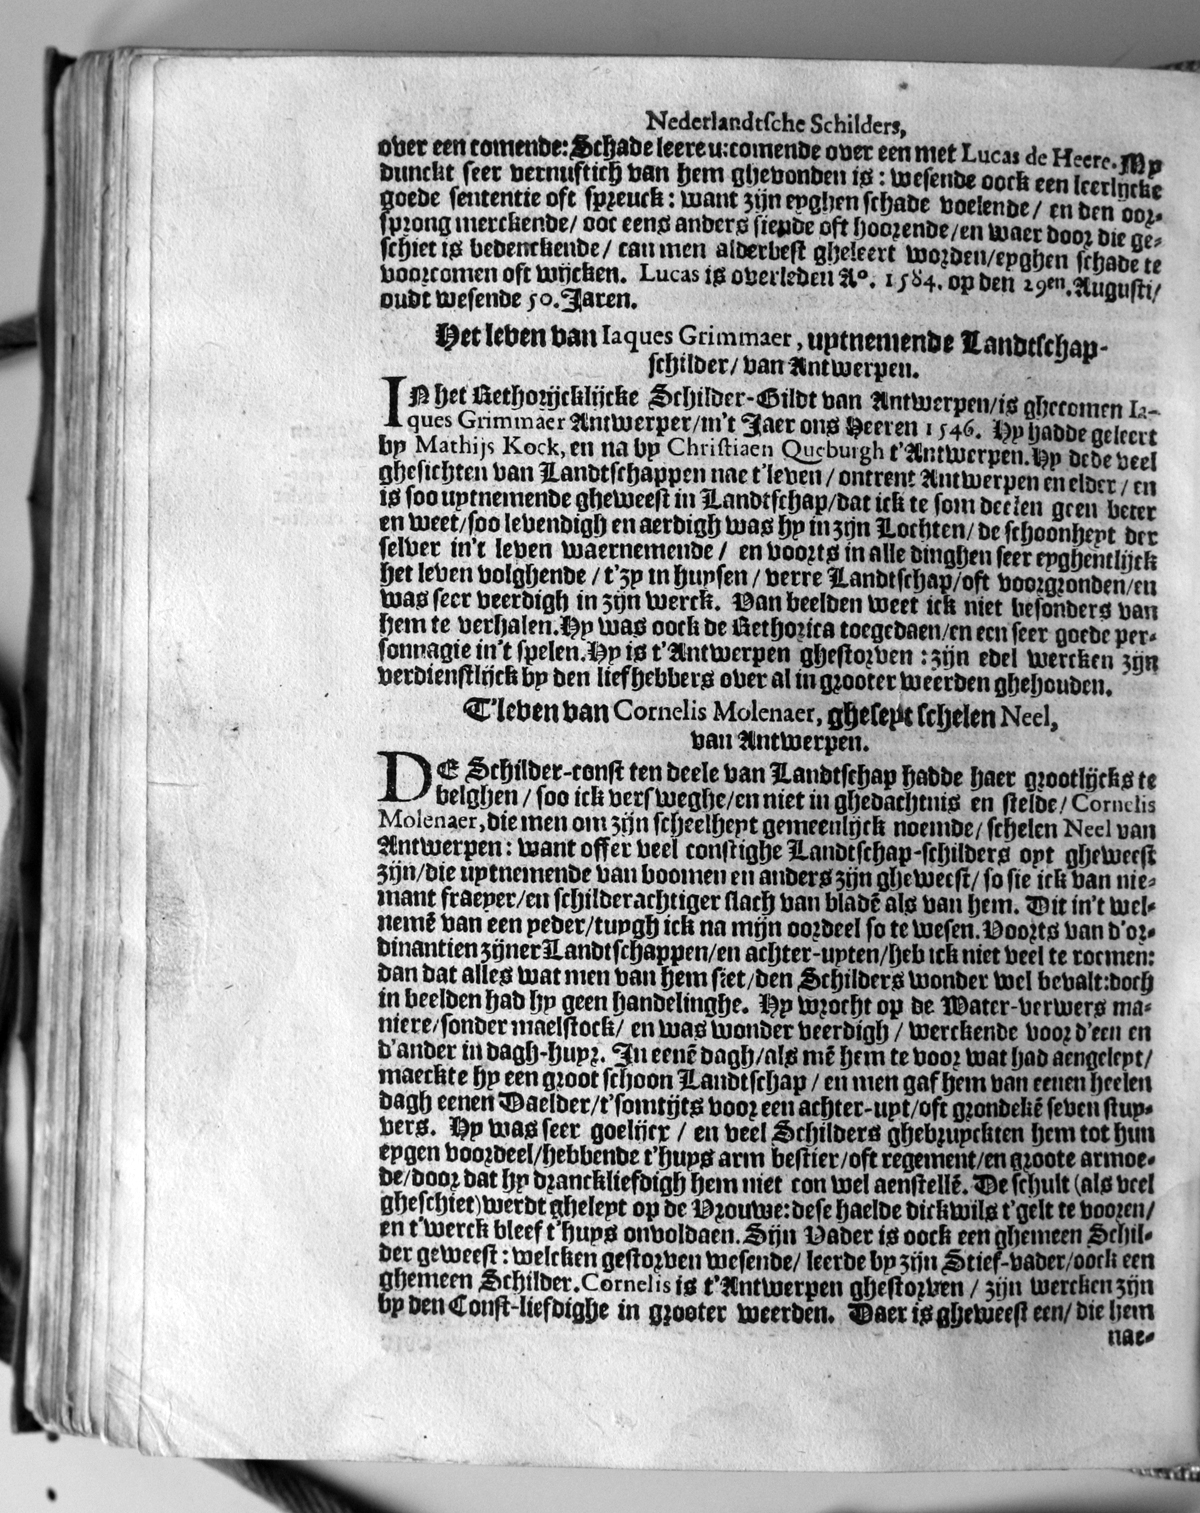 Nederlandtsche Schilders,
over een comende: Schade leere u: comende over een met Lucas de Heere. My
dunckt seer vernuftich van hem ghevonden is: wesende oock een leerlijcke
goede sententie oft spreuck: want zijn eyghen schade voelende/ en den oor-
sprong merckende/ ooc eens anders siende oft hoorende/ en waer door die ge-
schiet is bedenckende/ can men alderbest gheleert worden/ eyghen schade te
voorcomen oft wijcken. Lucas is overleden Aº. 1584. op den 29en. Augusti/
oudt wesende 50. Jaren.
Het leven van Iaques Grimmaer, uytnemende Landtschap-
schilder/ van Antwerpen.
IN het Rethorijcklijcke Schilder-Gildt van Antwerpen/ is ghecomen Ia-
ques Grimmaer Antwerper/ in't Jaer ons Heeren 1546. Hy hadde geleert
by Mathijs Kock, en na by Christiaen Queburgh t'Antwerpen. Hy dede veel
ghesichten van Landtschappen nae t'leven/ ontrent Antwerpen en elder/ en
is soo uytnemende gheweest in Landtschap/ dat ick te som deelen geen beter
en weet/ soo levendigh en aerdigh was hy in zijn Lochten/ de schoonheyt der
selver in't leven waernemende/ en voorts in alle dinghen seer eyghentlijck
het leven volghende/ t'zy in huysen/ verre Landtschap/ oft voorgronden/ en
was seer veerdigh in zijn werck. Van beelden weet ick niet besonders van
hem te verhalen. Hy was oock de Rethorica toegedaen/ en een seer goede per-
sonnagie in't spelen. Hy is t'Antwerpen ghestorven: zijn edel wercken zijn
verdienstlijck by den liefhebbers over al in grooter weerden ghehouden.
T'leven van Cornelis Molenaer, gheseyt schelen Neel,
van Antwerpen.
DE Schilder-const ten deele van Landtschap hadde haer grootlijcks te
belghen/ soo ick versweghe/ en niet in ghedachtnis en stelde/ Cornelis
Molenaer, die men om zijn scheelheyt gemeenlijck noemde/ schelen Neel van
Antwerpen: want offer veel constighe Landtschap-schilders oyt gheweest
zijn/ die uytnemende van boomen en anders zijn gheweest/ so sie ick van nie-
mant fraeyer/ en schilderachtiger slach van bladē als van hem. Dit in't wel-
nemē van een yeder/ tuygh ick na mijn oordeel so te wesen. Voorts van d'or-
dinantien zijner Landtschappen/ en achter-uyten/ heb ick niet veel te roemen:
dan dat alles wat men van hem siet/ den Schilders wonder wel bevalt: doch
in beelden had hy geen handelinghe. Hy wrocht op de Water-verwers ma-
niere/ sonder maelstock/ en was wonder veerdigh/ werckende voor d'een en
d'ander in dagh-huyr. In eenē dagh/ als mē hem te voor wat had aengeleyt/
maeckte hy een groot schoon Landtschap/ en men gaf hem van eenen heelen
dagh eenen Daelder/ t'somtijts voor een achter-uyt/ oft grondekē seven stuy-
vers. Hy was seer goelijck/ en veel Schilders ghebruyckten hem tot hun
eygen voordeel/ hebbende t'huys arm bestier/ oft regement/ en groote armoe-
de/ door dat hy dranckliefdigh hem niet con wel aenstellē. De schult (als veel
gheschiet) werdt gheleyt op de Vrouwe: dese haelde dickwils t'gelt te vooren/
en t'werck bleef t'huys onvoldaen. Sijn Vader is oock een ghemeen Schil-
der geweest: welcken gestorven wesende/ leerde by zijn Stief-vader/ oock een
ghemeen Schilder. Cornelis is t'Antwerpen ghestorven/ zijn wercken zijn
by den Const-liefdighe in grooter weerden. Daer is gheweest een/ die hem
nae-